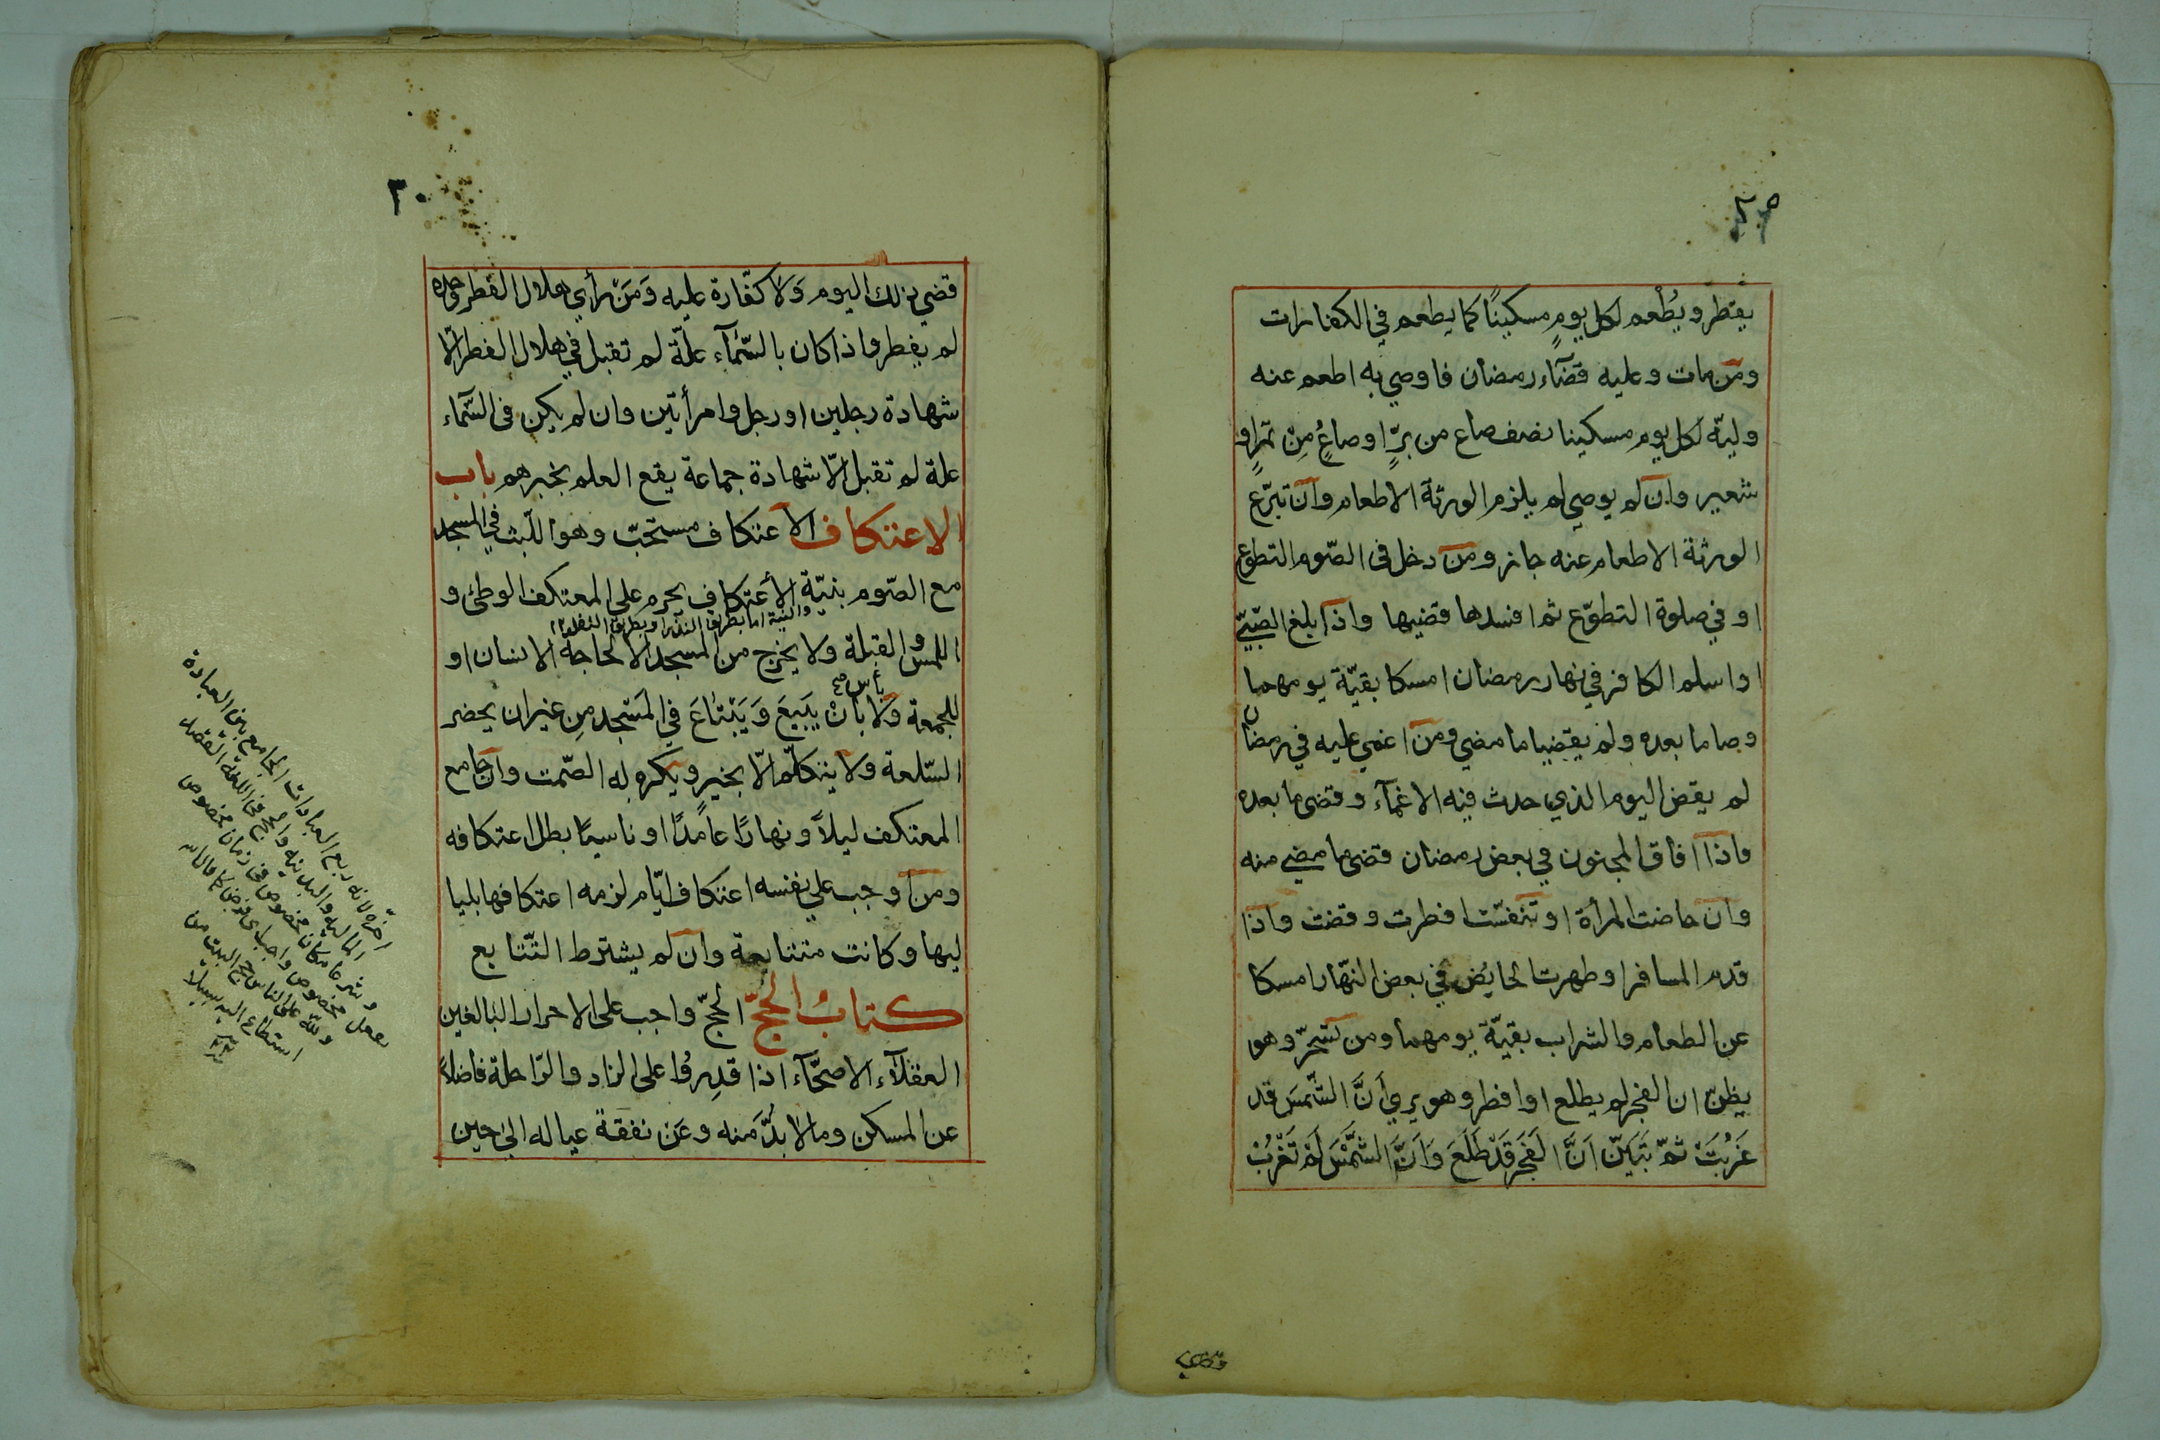 يفطر ويُطْعم لكل يومٍ مسكينًا كما يطعم في الكفارات
ومن مات وعليه قضآء رمضان فاوصي به اطعم عنه
وليّه لكل يوم مسكينا نصف صاع من برٍّ او صاعٍ مِنْ تمرٍ او
شعير وان لم يوصي لم يلزم الورثة الاطعام وان تبرّع
الورثة الاطعام عنه جاز ومن دخل فى الصّوم التطوع
او في صلوة التطوّع ثم افسدها قضيها واذا بلغ الصّبيّ
او اسلم الكافر في نهار رمضان امسكا بقيّة يومهما
وصاما بعده ولم يقضيا ما مضي ومن اغمي عليه في رمضان
لم يقض اليوم الذي حدث فيه الاغمآء وقضى ما بعده
واذا افاق المجنون في بعض رمضان قضى ما مضي منه
وان حاضت المرأة او تنفسّت افطرت وقضت واذا
قدم المسافر او طهرت الحايُض في بعض النهّار امسكا
عن الطعام والشراب بقيّة يومهما ومن تسحّر وهو
يظنّ ان الفجر لم يطلع او افطر وهو يري أنَّ الشّمسَ قد
غَرُبَتْ ثمّ تبَيّن اَنَّ الفَجَر قَدْ طَلَعَ وَاَنَّ الشَّمْسَ لَمْ تَغْرُبْ
٣٠
قضي ذلك اليوم وَلا كفّارة عليه وَمَنْ رأي هلال الفطر وحده
لم يفطر واذا كان بالسّمآء علّة لم تقبل في هلال الفطر الّا
شهادة رجلين او رجل وامرأتين وان لم يكن فى السّمآء
علة لم تقبل الّا شهادة جماعة يقع العلم بخبرهم باب
الاعتكاف الاعتكاف مستحبّ وهو اللّبث في المسجد
مع الصّوم بنيّة الأعتكاف يحرم علي المعتكف الوطئ و
والنية اما بطريق النذر او بطريق النفل ١٢
اللمس والقبلة ولا يخرج من المسجد الا لحاجة الانسان او
بأس صح
للجمعة وَلا بأنْ يَبيعَ وَ يَبْتاعَ في المَسْجد مِن غيران يحضر
السّلعة ولا يتكلّم الّا بخيرٍ ويكره له الصّمت وان جامع
المعتكف ليلاً ونهارًا عامدًا او ناسيًا بطل اعتكافه
ومن اوجب علي نفسه اعتكاف ايّام لزمه اعتكافها بليا
ليها وكانت متتابعة وان لم يشترط التّتابع
كتابُ الحجّ الحجّ واجب على الاحرار البالغين
العقلآء الاصحّآء اذا قدِرُوا على الزاد والرّاحلة فاضلاً
عن المسكن وما لا بدَّ منه وعَن نفقة عياله الىٰ حين
اخرّه لانه ربع العبادات الجامع بين العبادة
المالية والبدنية والحج فى اللغة القصد
وشرعا مكان مخصوص فى زمان مخصوص
بفعل مخصوص واجب اى فرض كما قال الله
ولله على الناس حج البيت من
استطاع اليه سبيلا